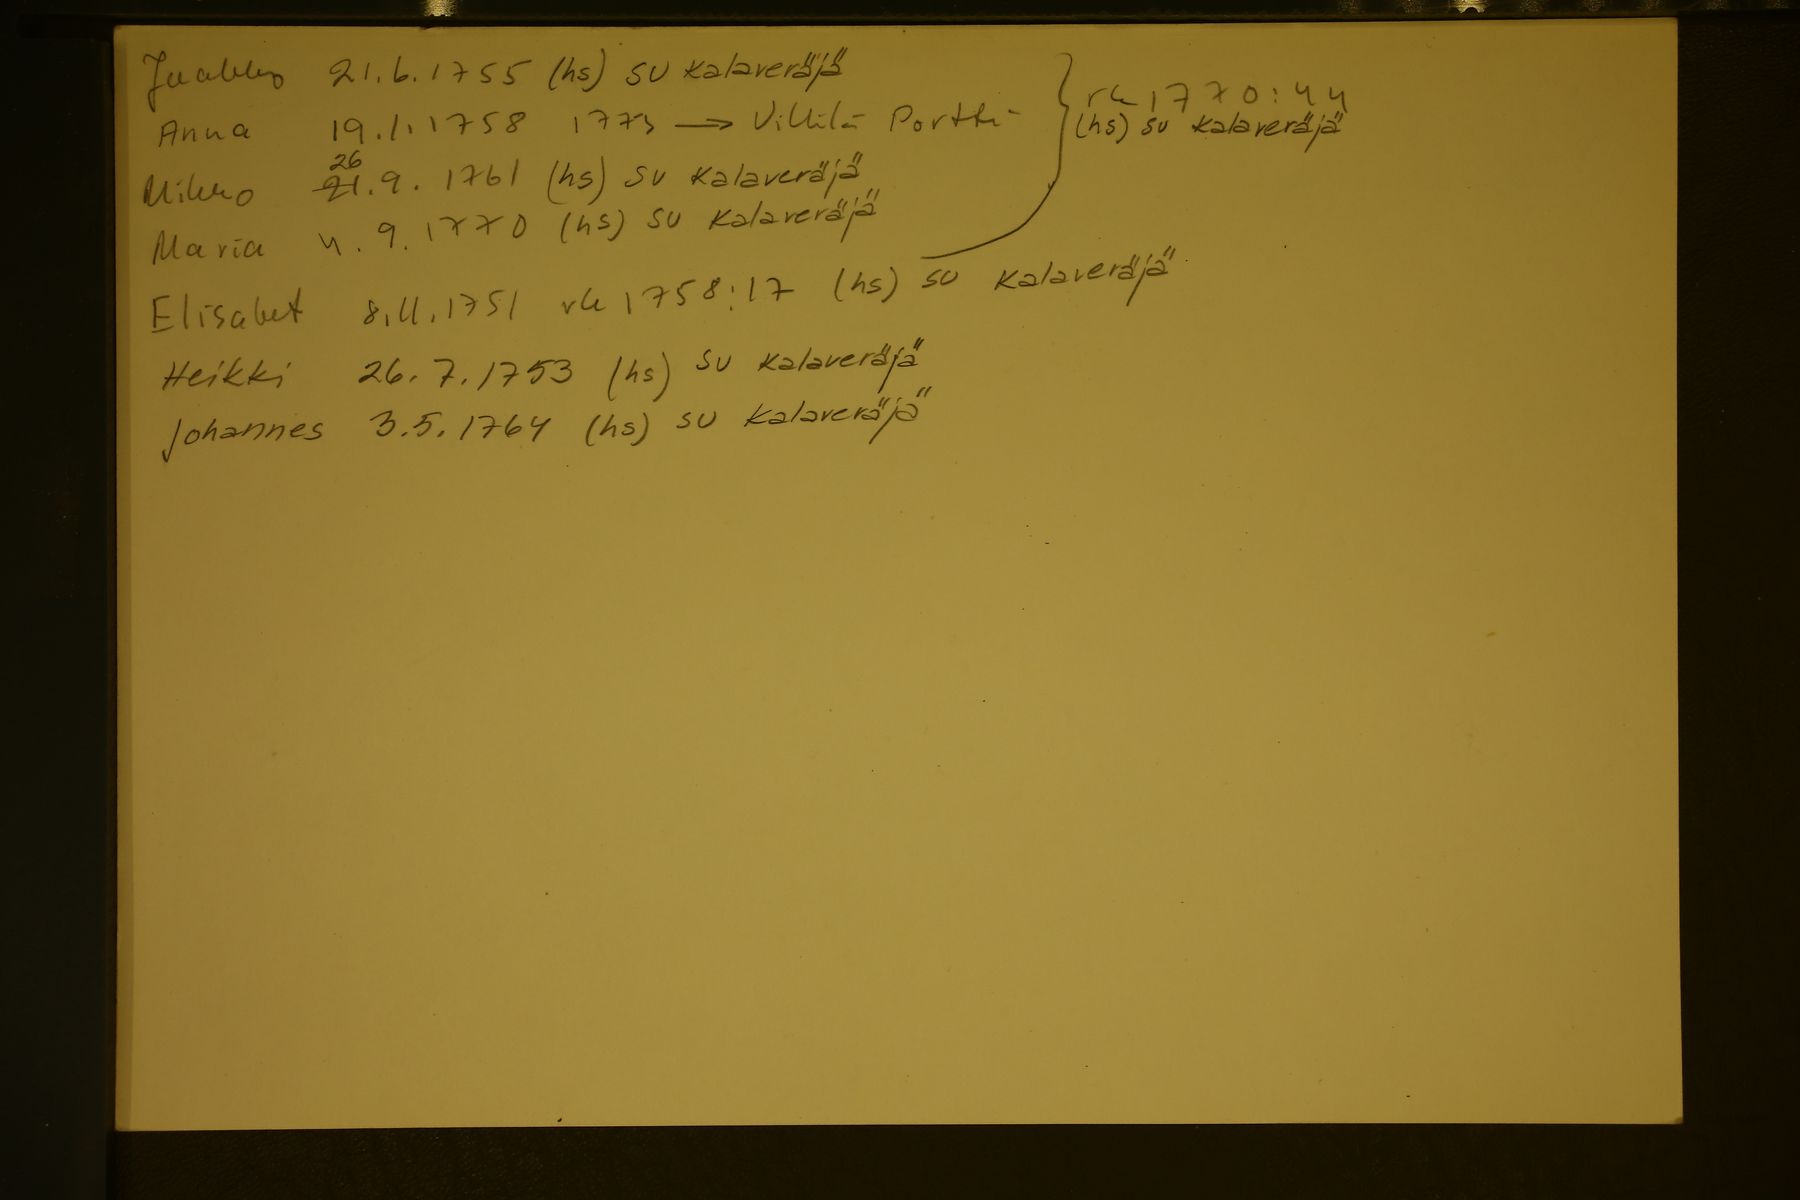 Jaakko 21.6.1755 (hs) su Kalaveräjä
Anna 19.1.1758 1773 → Villilä Portti
rk 1770:44
(hs) su Kalaveräjä
26
Mikko 21.9.1761 (hs) su Kalaveräjä
Maria 4.9.1770 (hs) su Kalaveräjä
Elisabet 8.11.1751 rk 1758:17 (hs) su Kalaveräjä
Heikki 26.7.1753 (hs) su Kalaveräjä
Johannes 3.5.1764 (hs) su Kalaveräjä